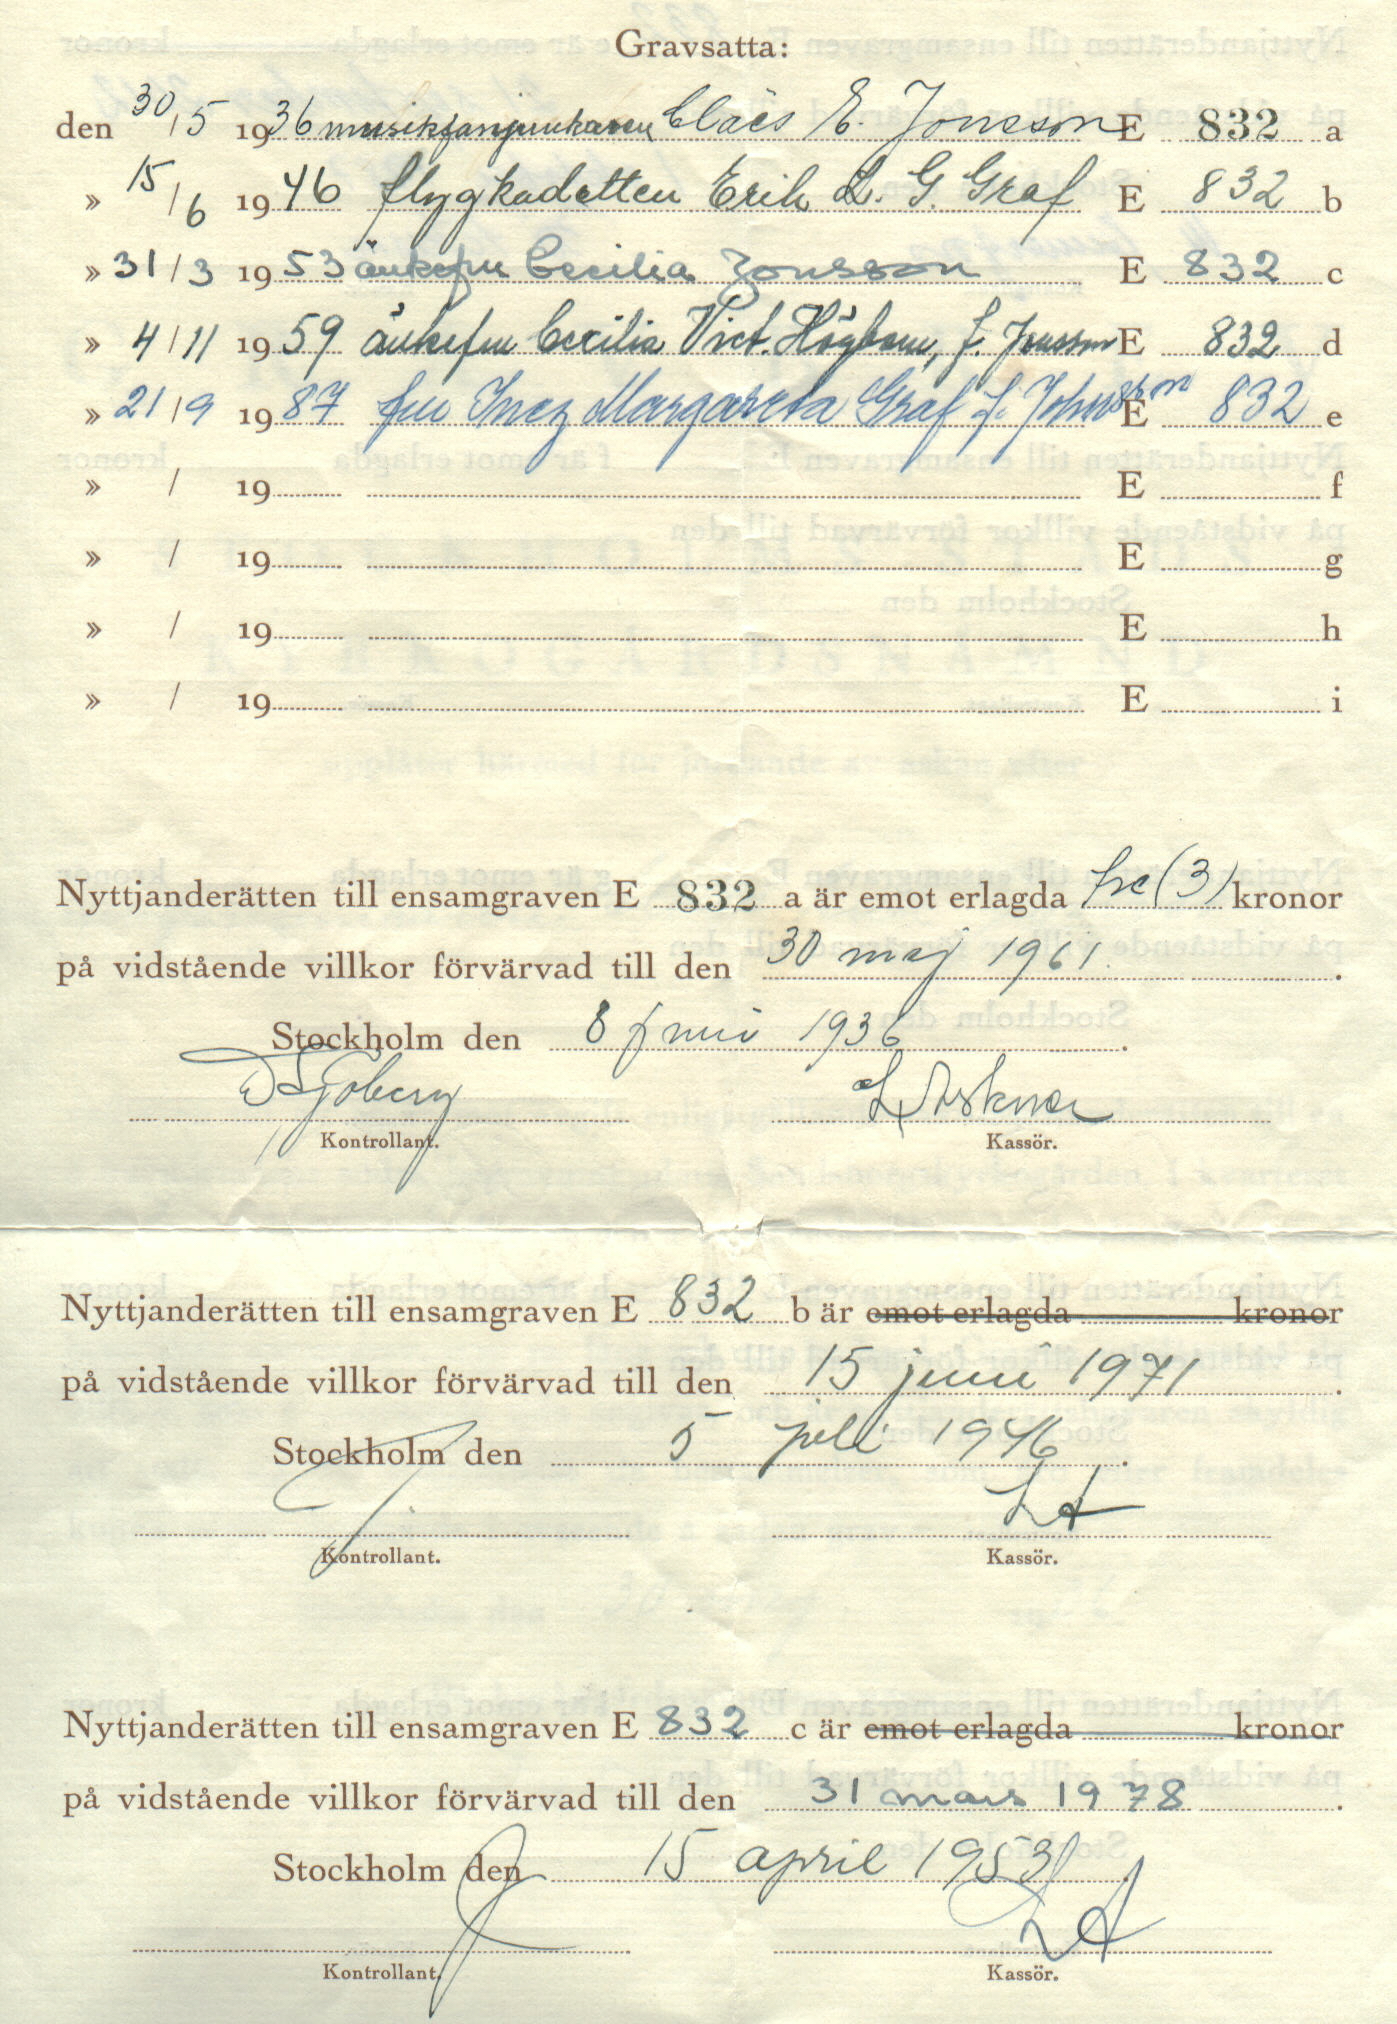 Gravsatta:
den 30/5 1936 musikfanjunkaren Claës E. Jonsson E 832 a
» 15/6 1946 flygkadetten Erik L. G. Graf E 832 b
» 31/3 1953 änkefru Cecilia Jonsson E 832 c
» 4/11 1959 änkefru Cecilia Vict. Högbom, f. Jonsson E 832 d
» 21/9 1987 fru Inez Margareta Graf f. Johnsson E 832 e
» / 19 E f
» / 19 E g
» / 19 E h
» / 19 E i
Nyttjanderätten till ensamgraven E 832 a är emot erlagda tre (3) kronor
på vidstående villkor förvärvad till den 30 maj 1961.
Stockholm den 8 juni 1936.
Sjöberg
Kontrollant. Kassör.
Nyttjanderätten till ensamgraven E 832 b är emot erlagda kronor
på vidstående villkor förvärvad till den 15 juni 1971.
Stockholm den 5 juli 1946.
LA
Kontrollant. Kassör.
Nyttjanderätten till ensamgraven E 832 c är emot erlagda kronor
på vidstående villkor förvärvad till den 31 mars 1978.
Stockholm den 15 april 1953.
LA
Kontrollant. Kassör.